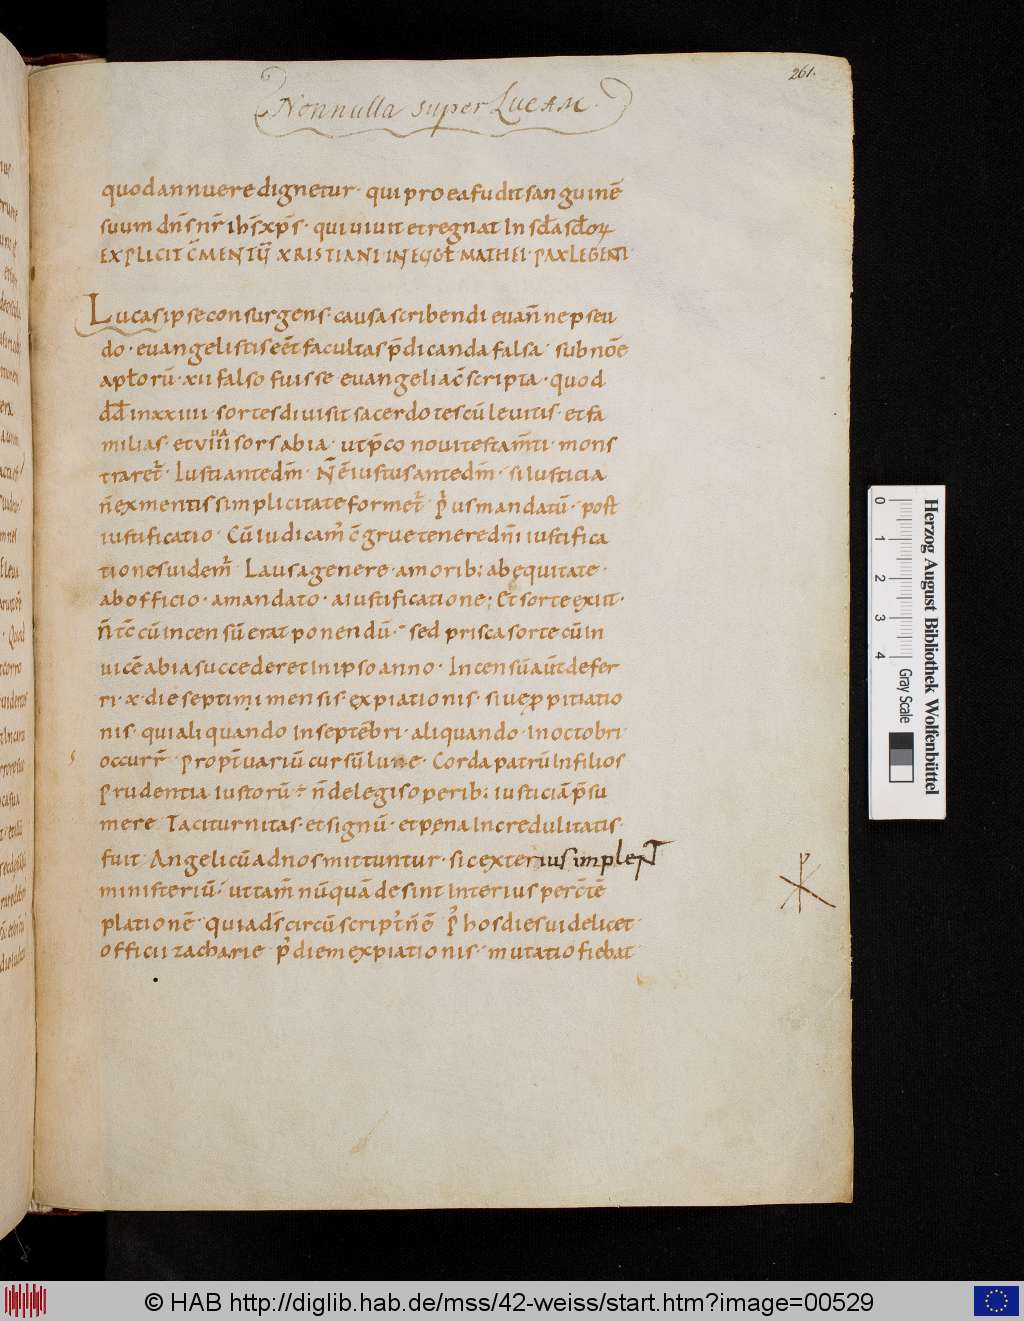 261.
Nonnulla super Lucam.
quod annuere dignetur· qui pro ea fudit sanguinē
suum dn̄s nr̄ ihs̄ xp̄s· qui uiuit et regnat In
EXPLICIT XRISTIANI· IN MATHEI· PAX LEGENTI·
Lucas ipse consurgens· causa scribendi euan̄ ne pseu
do· euangelistis eēt facultas p̄dicanda falsa· sub nōe
apɫorū· xii falso fuisse euangelia c̄scripta· quod
dđ in xxiiii· sortes diuisit sacerdotes cū leuitis· et fa
milias· et viii sors abia· ut p̄co noui testam̄ti· mons
traret̄· Iusti ante dm̄· N̄ ē iustus ante dm̄· si Iusticia
n̄ ex mentis simplicitate formet̄· p'us mandatū· post
iustificatio· Cū Iudicam' c̄grue tenere dn̄i iustifica
tiones uidem̄ Laus a genere· a morib; ab ęquitate·
ab officio· a mandato· a iustificatione; Et sorte exiit·
n̄ tc̄ cū incensū erat ponendū·· sed prisca sorte cū in
uicē abia succederet In ipso anno· Incensū aut̄ defer
ri· x· die septimi mensis· expiationis· siue ꝓpitiatio
nis· qui aliquando In septēbri· aliquando· In octobri·
occurr̄ propt̄ uariū cursū lune· Corda patrū In filios
Prudentia iustorū ÷ n̄ de legis operib; iusticiā p̄su
mere Taciturnitas· et signū· et pena Incredulitatis·
fuit Angeli cū ad nos mittuntur· sic exterius implent
ministeriū· ut tam̄ nūquā desint Interius per c̄tē
plationē· quia ds̄ circūscript' n̄ ē p' hos dies uidelicet·
officii zacharie p' diem expiationis· mutatio fiebat·
0 1 2 3 4
Gray Scale
Herzog August Bibliothek Wolfenbüttel
© HAB http://diglib.hab.de/mss/42-weiss/start.htm?image=00529